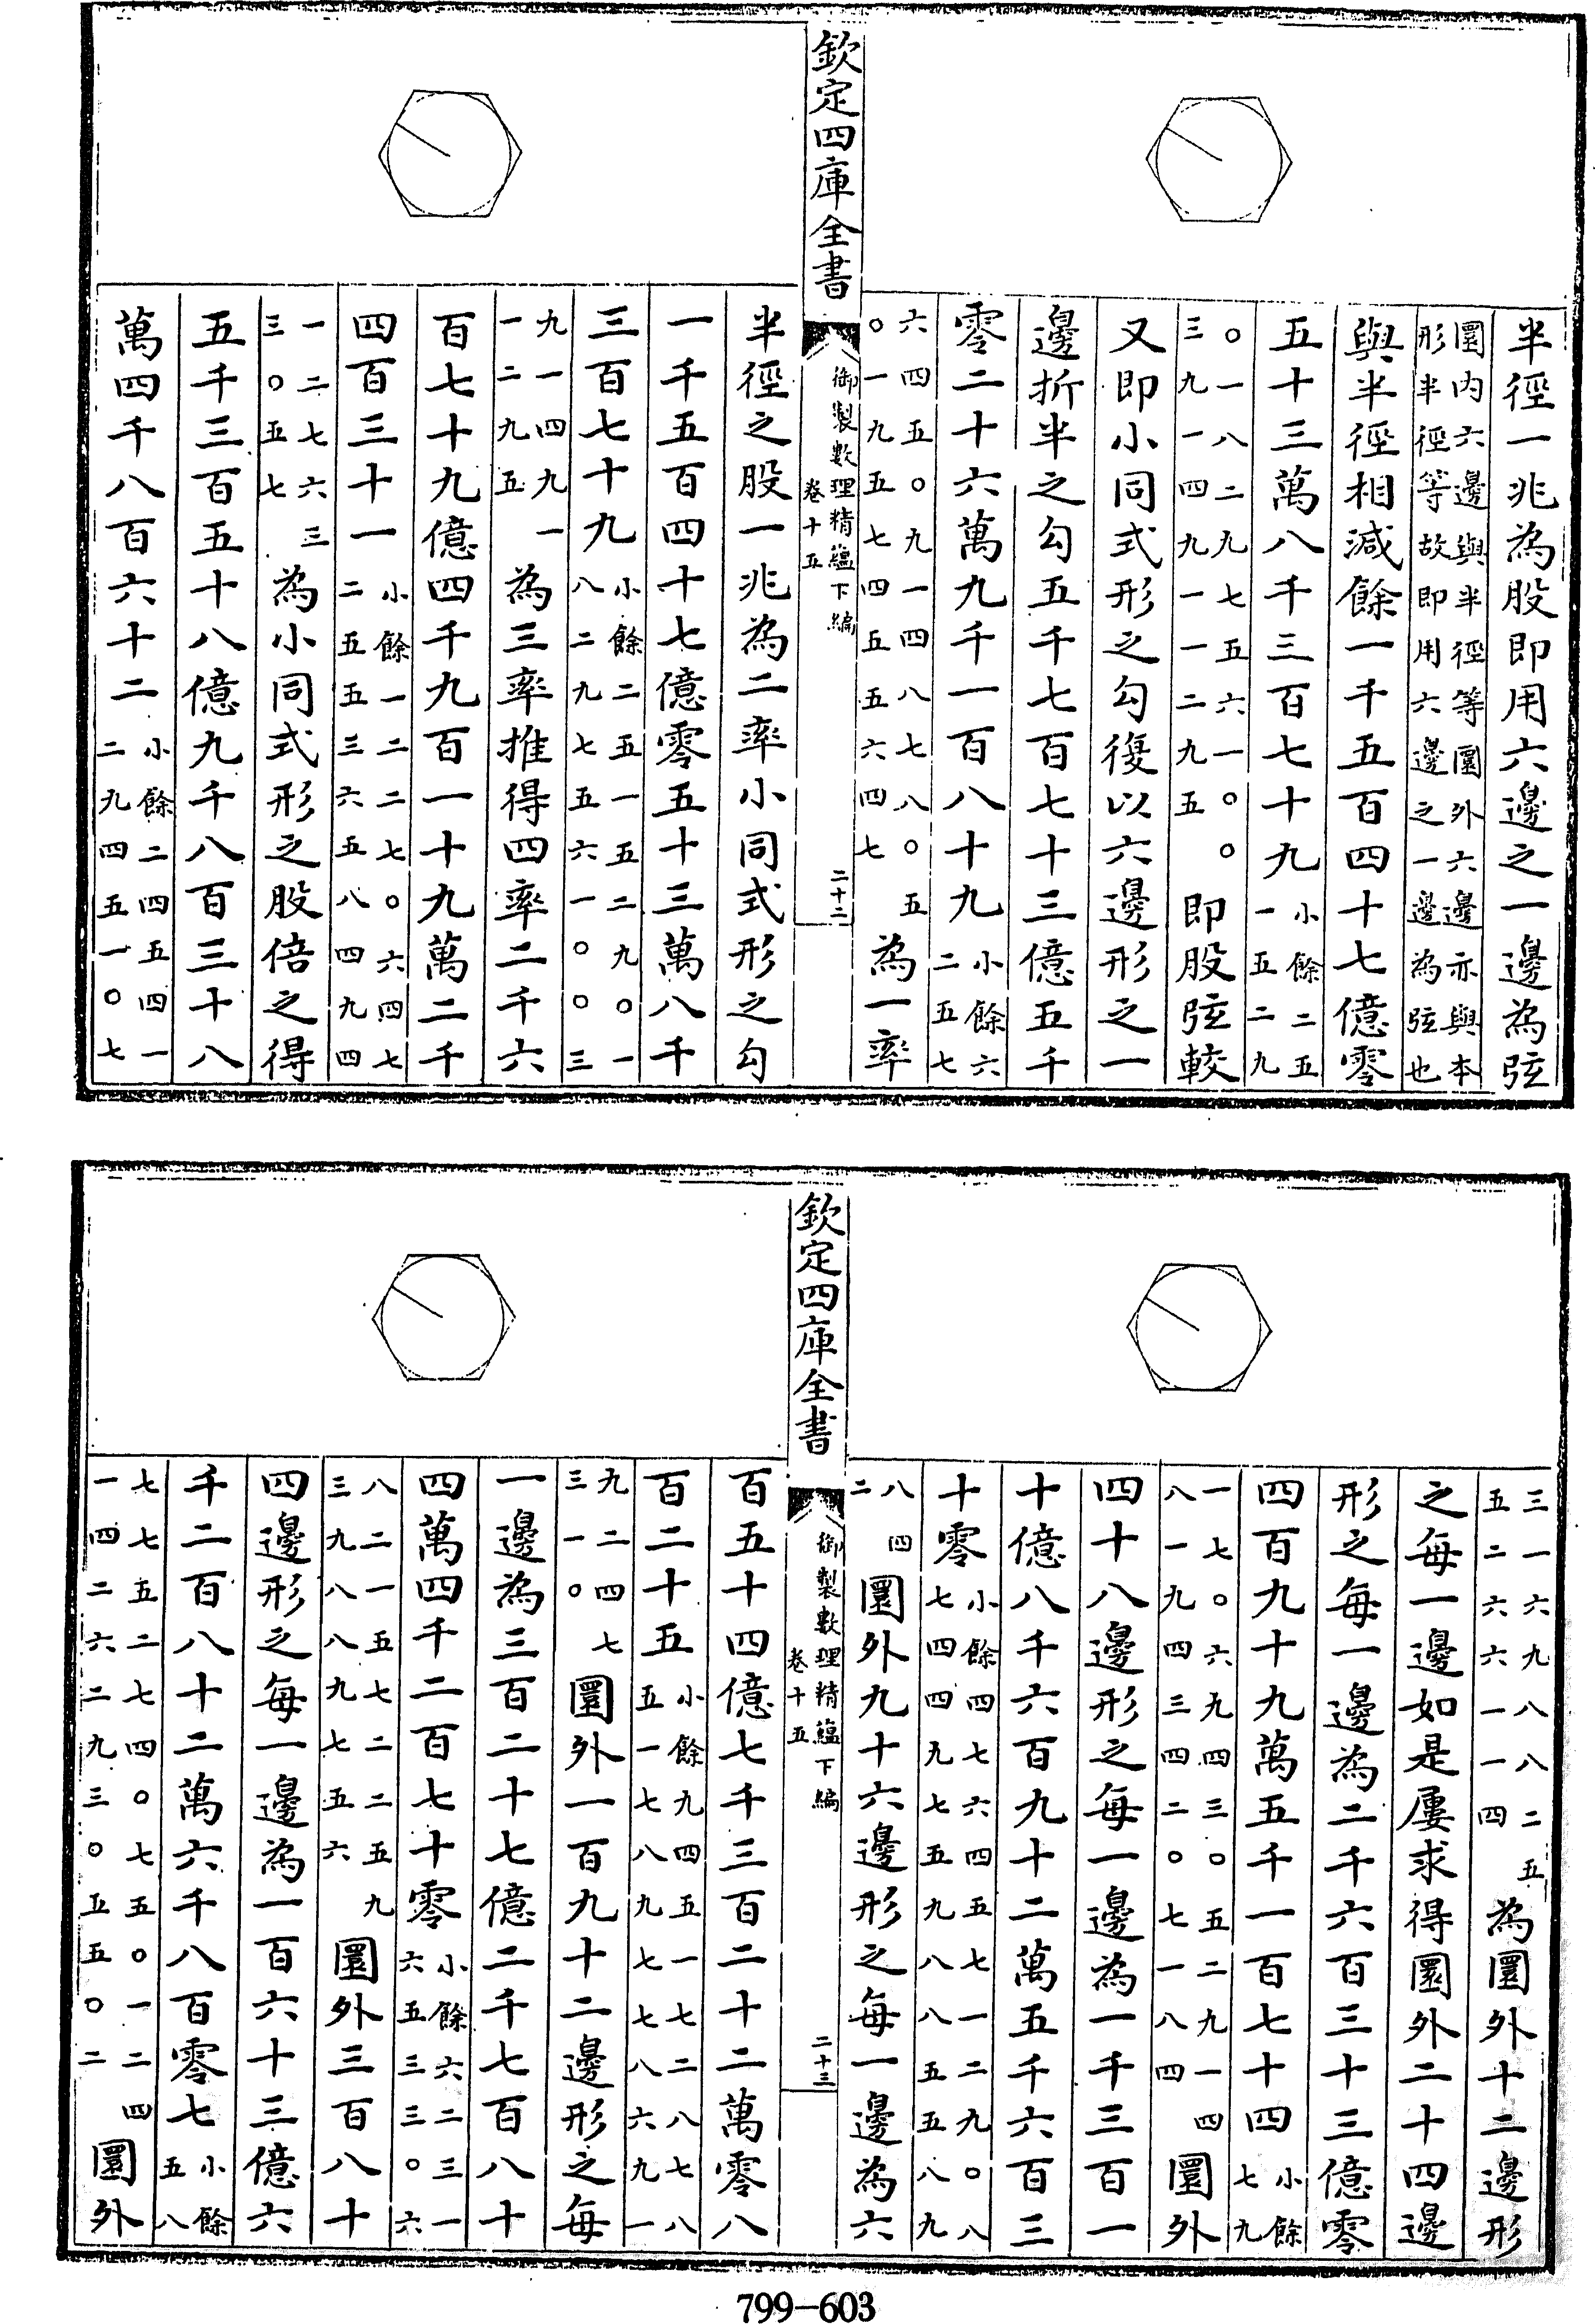 半徑一兆為股即用六邊之一邊為弦
圜内六邊與半徑等圜外六邊亦與本
形半徑等故即用六邊之一邊為弦也
與半徑相減餘一千五百四十七億零
五十三萬八千三百七十九小餘二五一五二九
〇一八二九七五六一〇〇三九一四九一一二九五即股弦較
又即小同式形之勾復以六邊形之一
邊折半之勾五千七百七十三億五千
零二十六萬九千一百八十九小餘六二五七
六四五〇九一四八七八〇五〇一九五七四五五六四七為一率
欽定四庫全書
御製數理精藴下編
卷十五
二十二
半徑之股一兆為二率小同式形之勾
一千五百四十七億零五十三萬八千
三百七十九小餘二五一五二九〇一八二九七五六一〇〇三
九一四九一一二九五為三率推得四率二千六
百七十九億四千九百一十九萬二千
四百三十一小餘一二二七〇六四七二五五三六五八四九四
一二七六三三〇五七為小同式形之股倍之得
五千三百五十八億九千八百三十八
萬四千八百六十二小餘二四五四一二九四五一〇七
三一六九八八二五五二六六一一四為圜外十二邊形
之每一邊如是屢求得圜外二十四邊
形之每一邊為二千六百三十三億零
四百九十九萬五千一百七十四小餘七九
一七〇六九四三〇五二九一四八一九四三四二〇七一八四圜外
四十八邊形之每一邊為一千三百一
十億八千六百九十二萬五千六百三
十零小餘四七六四五七一二九〇八七四四九七五九八八五五八九
八四二圜外九十六邊形之每一邊為六
欽定四庫全書
御製數理精藴下編
卷十五
二十三
百五十四億七千三百二十二萬零八
百二十五小餘九四五一七二八七八五一七八九七七八六九一
九二四七三一〇圜外一百九十二邊形之每
一邊為三百二十七億二千七百八十
四萬四千二百七十零小餘六二三一六五三三〇六
八二一五七二二五九三九八八九七五六圜外三百八十
四邊形之每一邊為一百六十三億六
千二百八十二萬六千八百零七小餘五八
七七五二七四〇七五〇一二四一四二六二九三〇五五〇二圜外
799-603